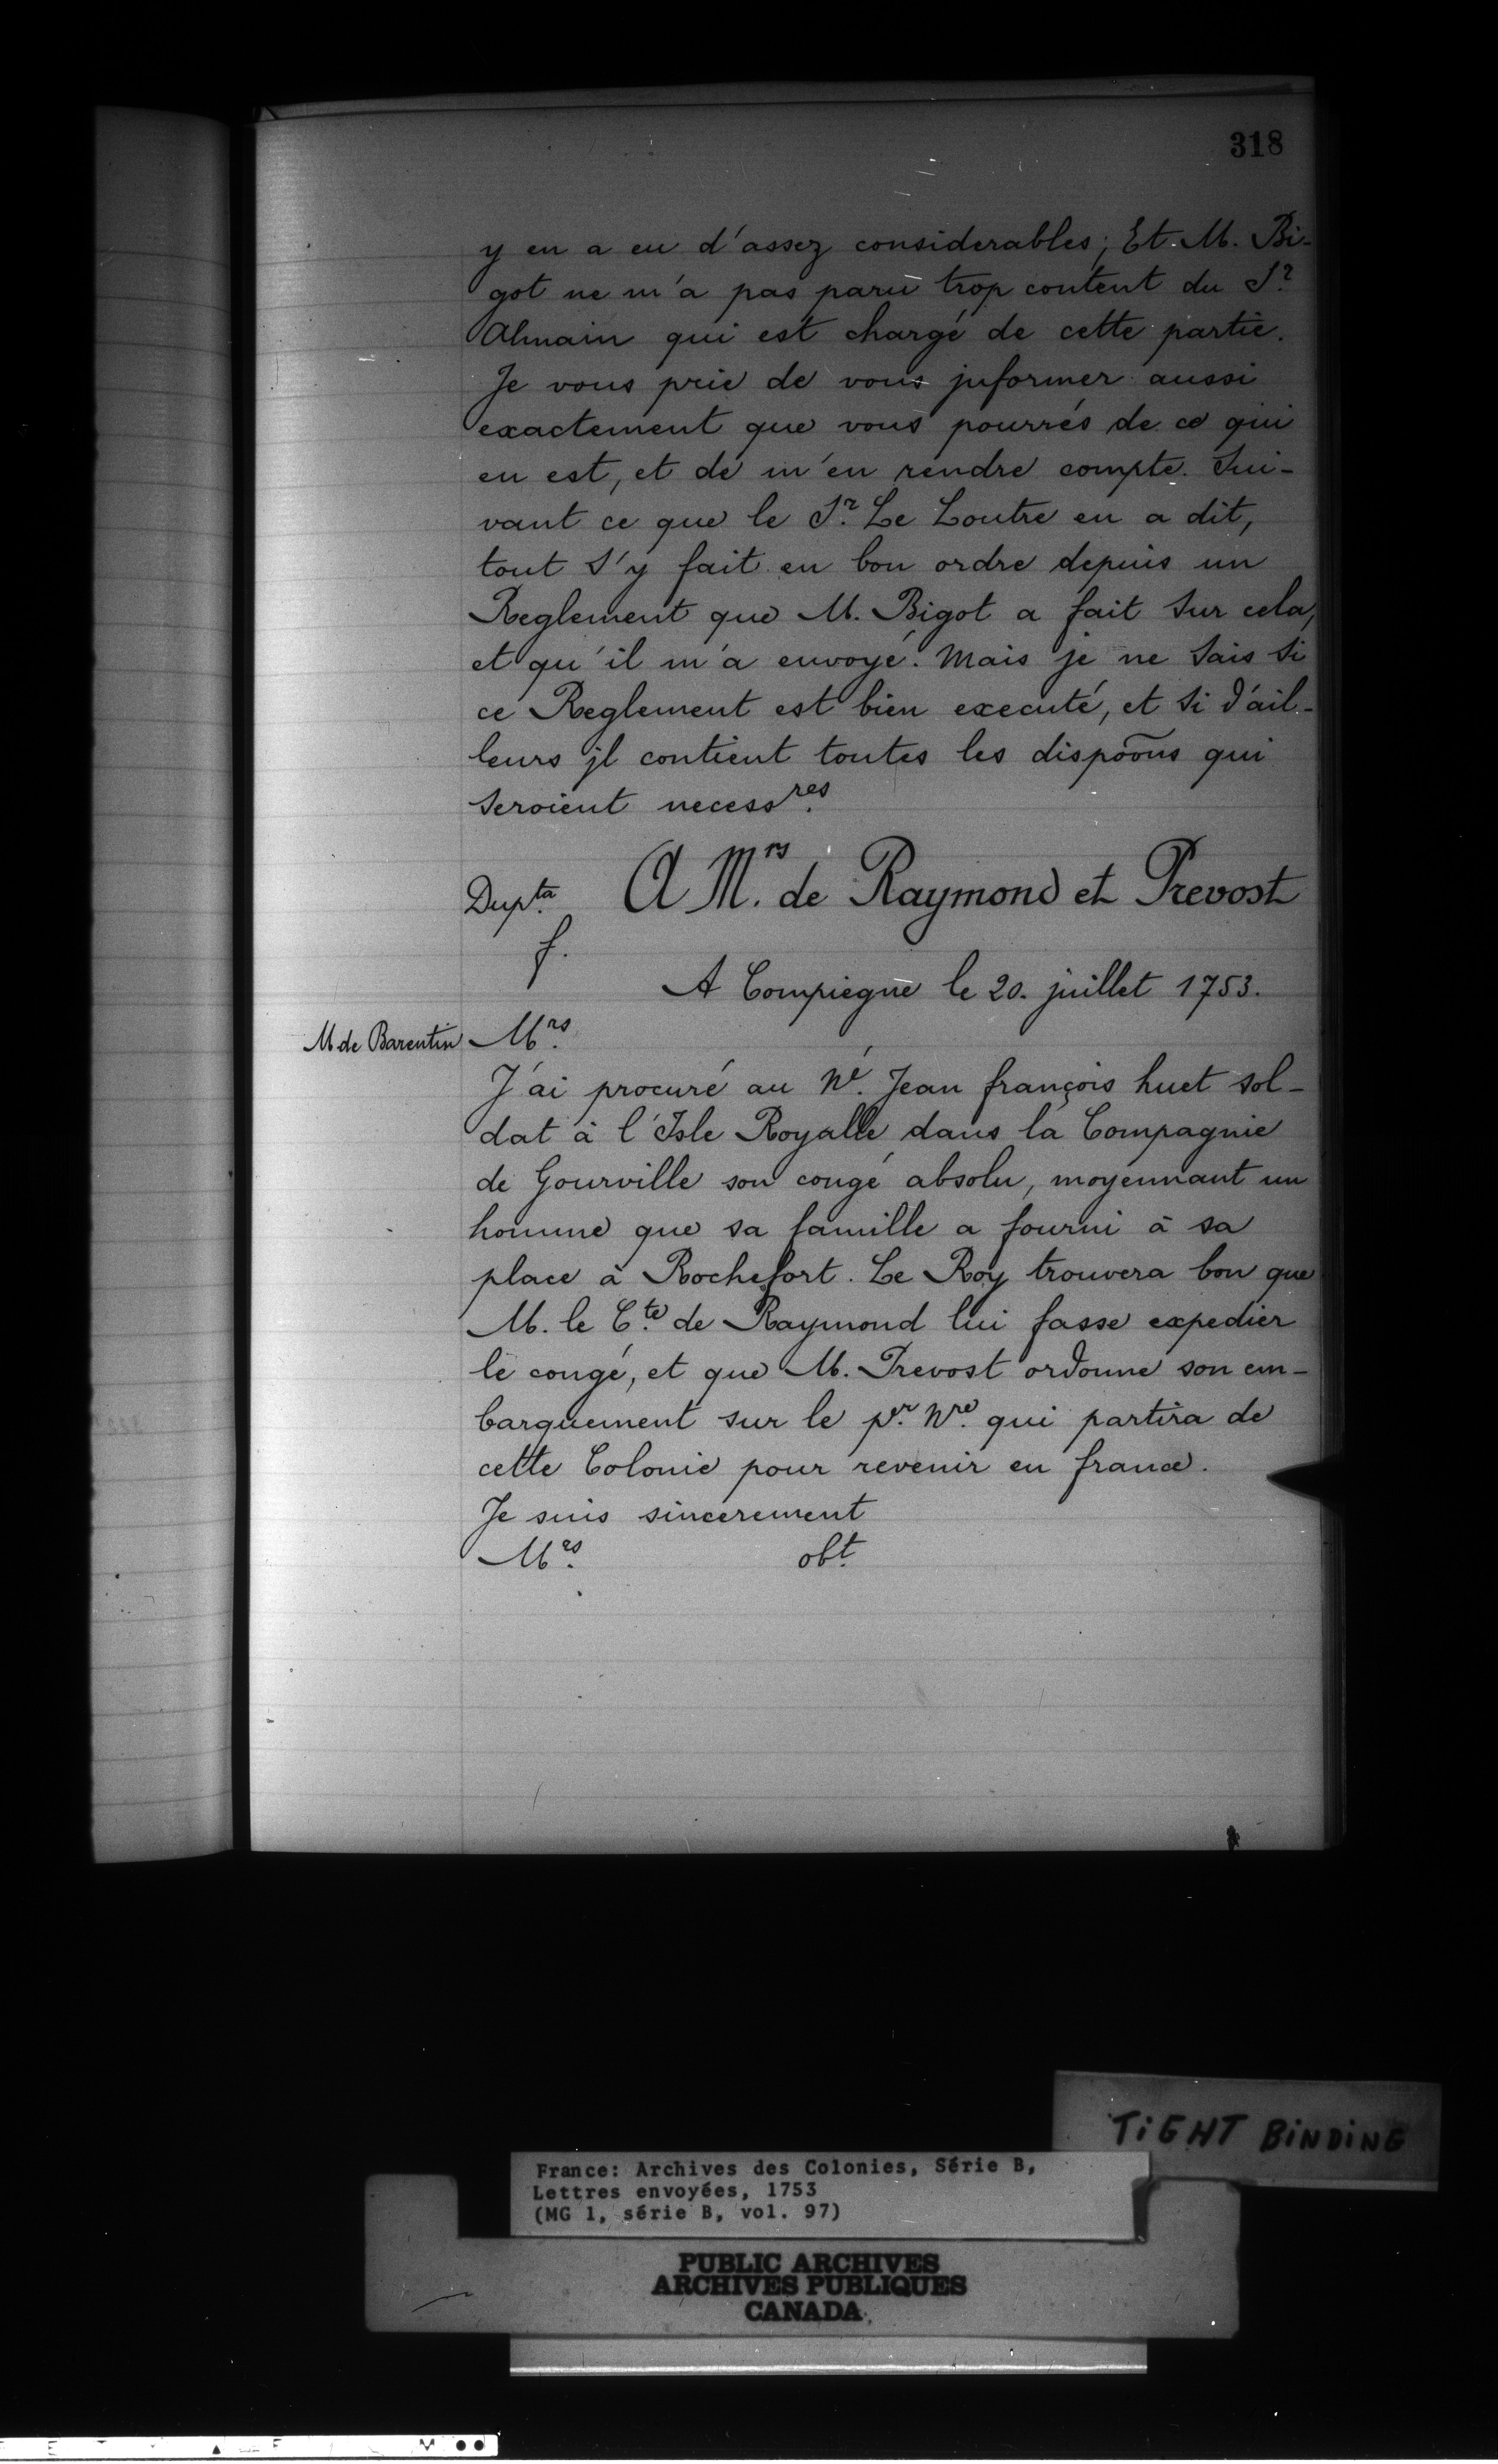 318
y en a eu d'assez considerables; Et M. Bi-
got ne m'a pas paru trop content du Sr.
Almain qui est chargé de cette partie.
Je vous prie de vous jnformer aussi
exactement que vous pourrés de ce qui
en est, et de m'en rendre compte. Sui-
vant ce que le Sr. Le Loutre en a dit,
tout s'y fait en bon ordre depuis un
Reglement que M. Bigot a fait sur cela,
et qu'il m'a envoyé. Mais je ne sais si
ce Reglement est bien executé, et si d'ail-
leurs jl contient toutes les dispõons qui
seroient necessres.
Dupta. A Mrs. de Raymond et Prevost
f.
A Compiegne le 20. juillet 1753.
M de Barentin Mrs.
J'ai procuré au né. Jean françois huet sol-
dat à l'Isle Royalle dans la Compagnie
de Gourville son congé absolu, moyennant un
homme que sa famille a fourni à sa
place à Rochefort. Le Roy trouvera bon que
M. le Cte. de Raymond lui fasse expedier
le congé, et que M. Prevost ordonne son em-
barquement sur le pr. Nre. qui partira de
cette Colonie pour revenir en france.
Je suis sincerement
Mrs. obt.
TIGHT BINDING
France: Archives des Colonies, Série B,
Lettres envoyées, 1753
(MG 1, série B, vol. 97)
PUBLIC ARCHIVES
ARCHIVES PUBLIQUES
CANADA